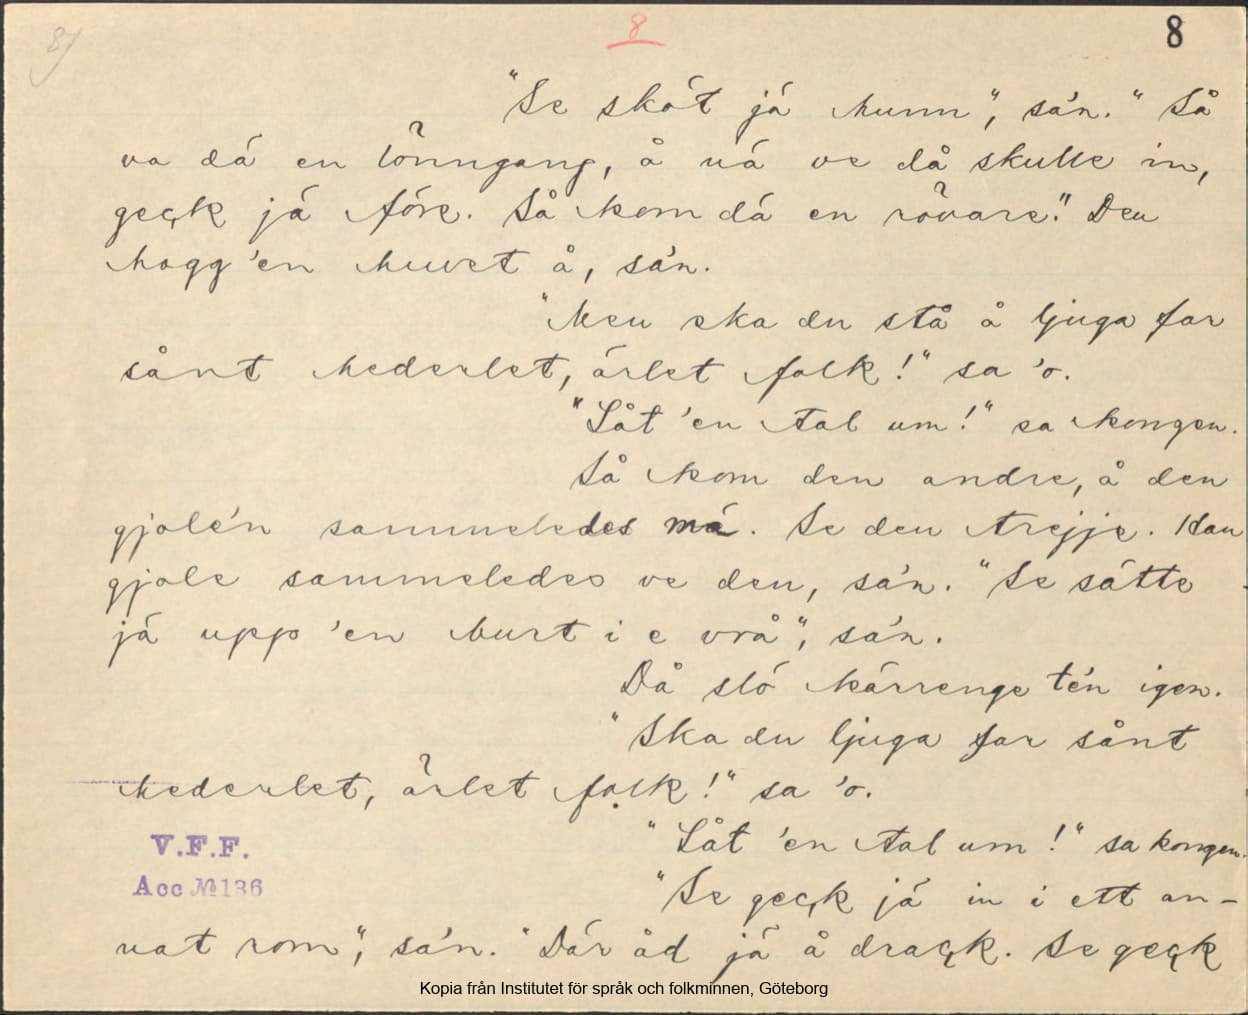 8
8
87
"Se skát já hunn", sá'n. "Så
va dá en lönngang, å ná ve då skulle in,
geçk já före. Så kom dá en rövare." Den
hogg 'en huvet å, sá'n.
"Men ska du stå å ljuga far
sånt hederlet, árlet folk!" sa 'o.
"Låt 'en tal um!" sa kongen.
Så kom den andre, å den
gjole'n sammeledes má. Se den trejje. Han
gjole sammeledes ve den, sá'n. "Se sátte
já upp 'en burt i e vrå", sá'n.
Då sló kárrenge té'n igen.
"Ska du ljuga far sånt
hederlet, árlet folk!" sa 'o.
"Låt 'en tal um!" sa kongen.
"Se geçk já in i ett an-
nat rom", sá'n. "Dár åd já å draçk. Se geçk
V.F.F.
Acc № 136
Kopia från Institutet för språk och folkminnen, Göteborg